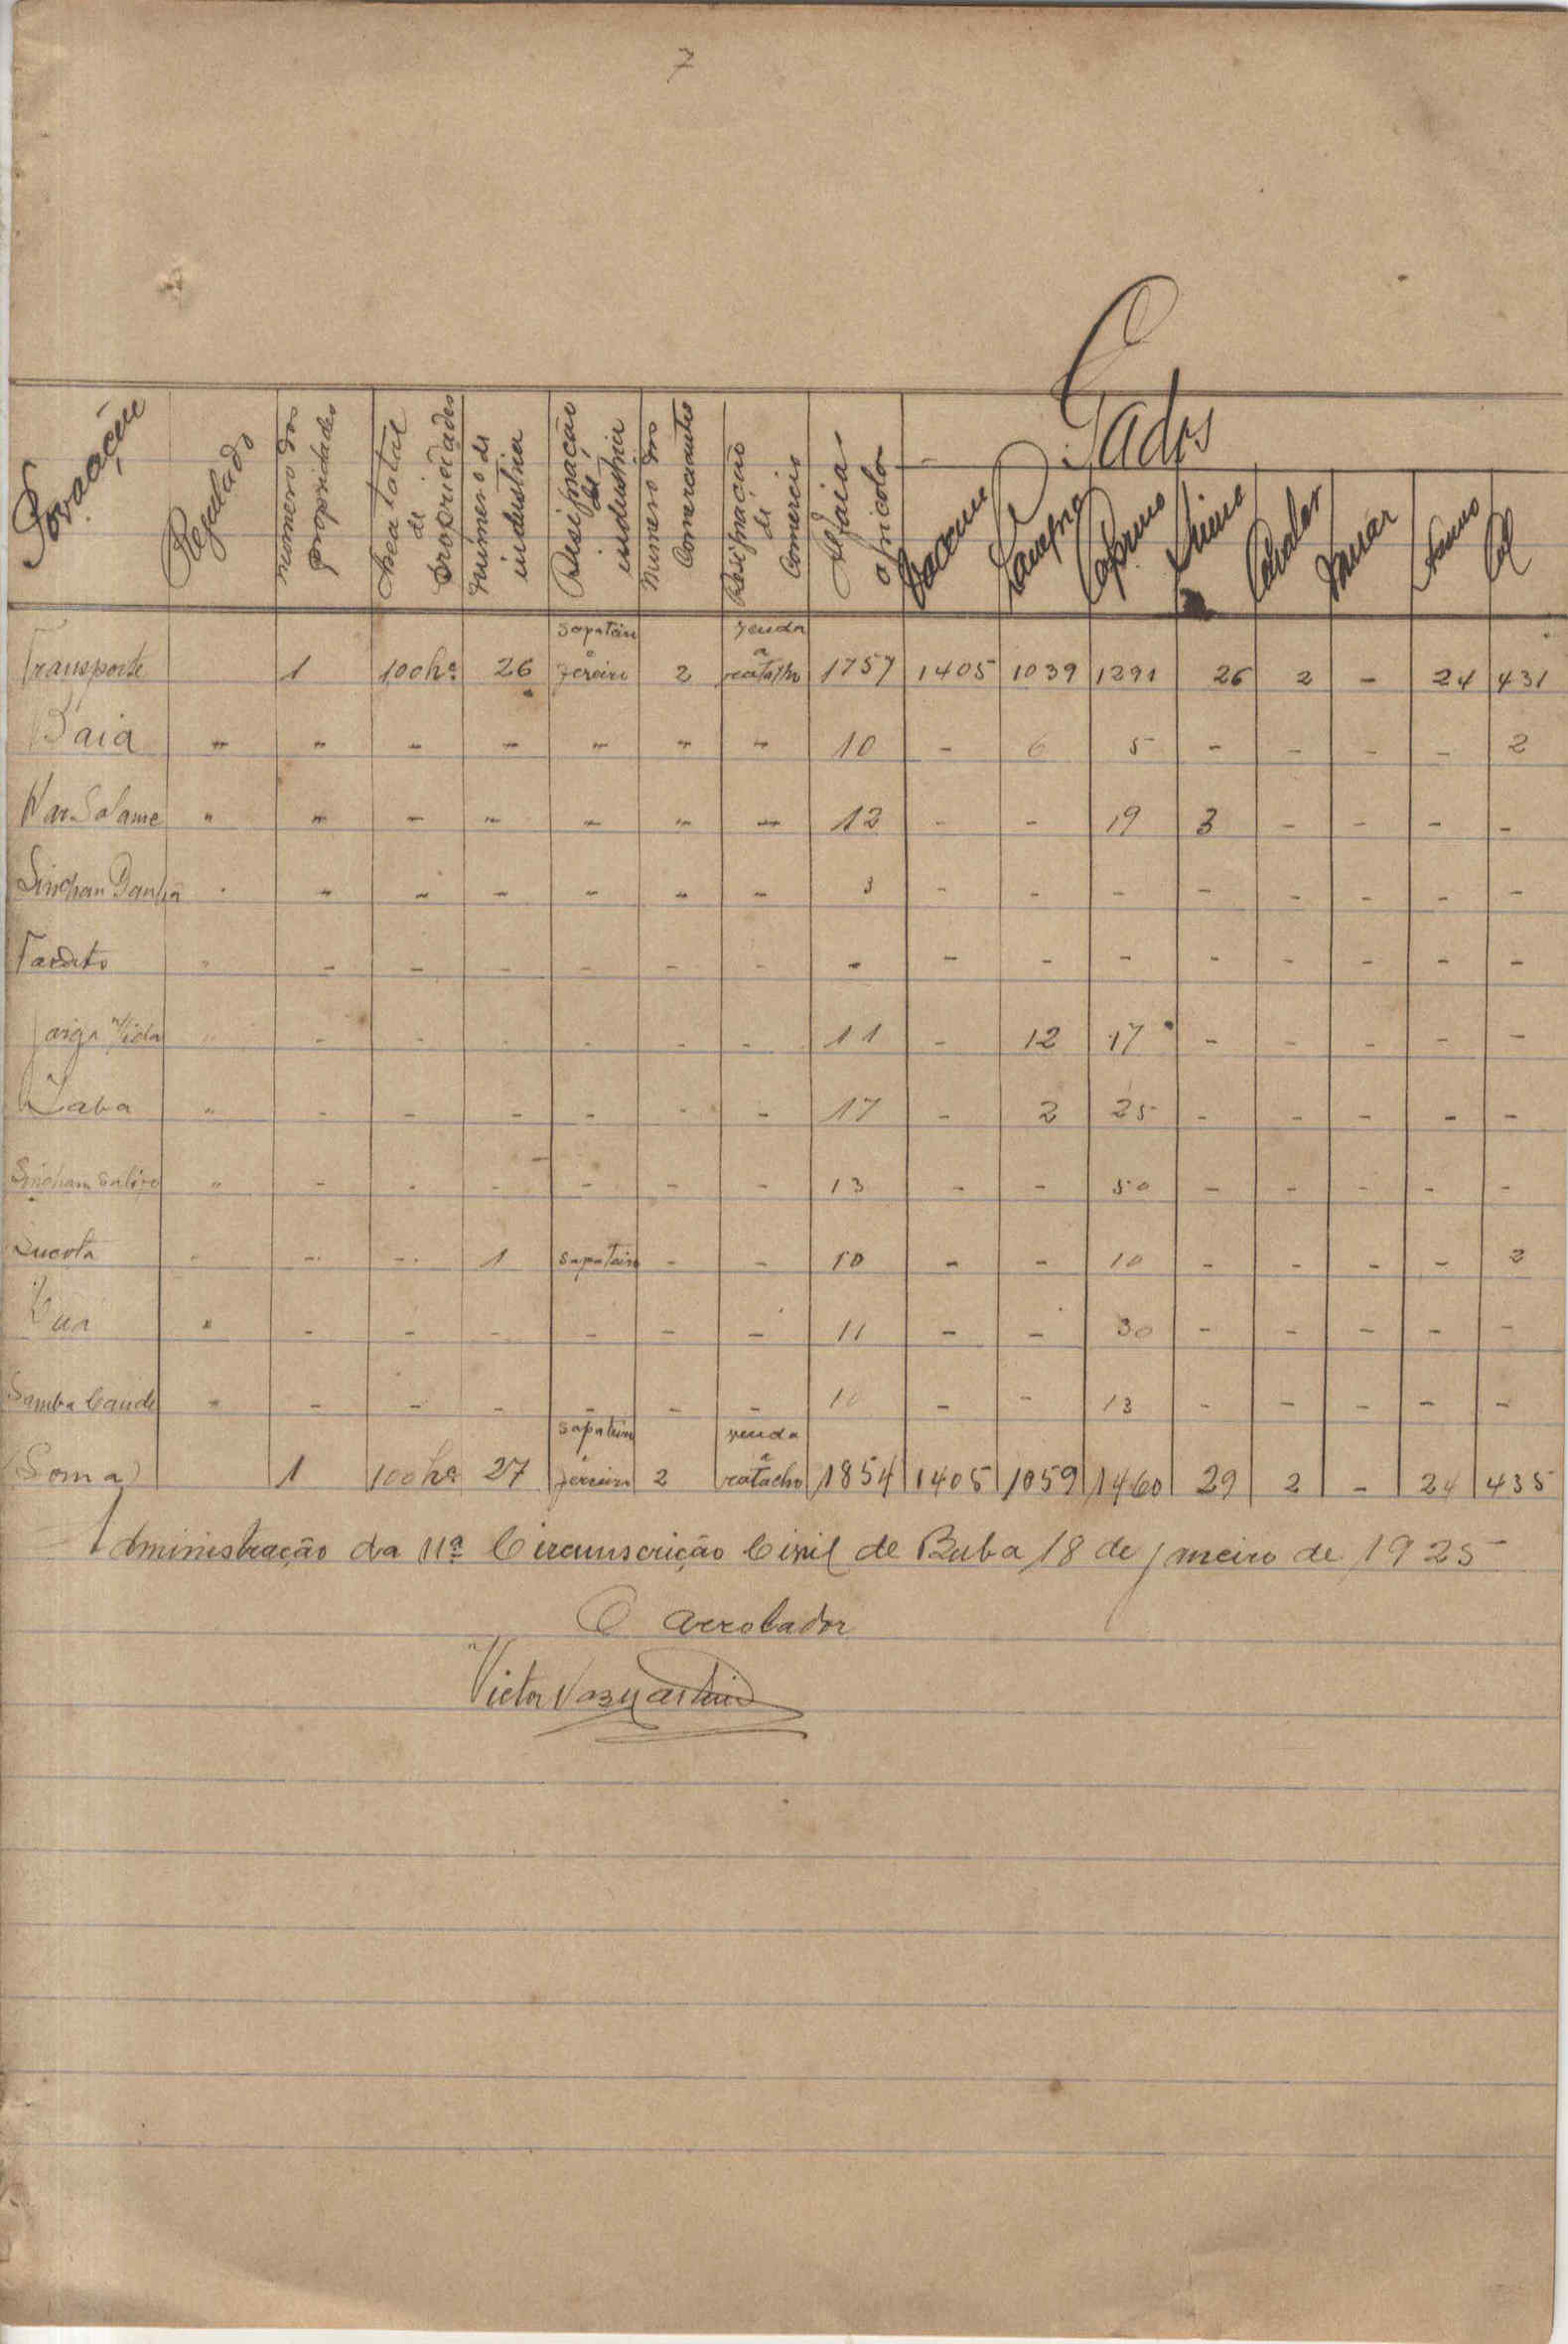 7
Gados
Povoação Regulado numero das propriedades Area total de propriedades Numero de industria Designação de industria Numero dos Comerciantes Designação de Comercio Alfaia agricola Vacum Lanigno Caprino Suino Cavalar Muar Asnino
sapateiro venda
Transporte 1 100ha 26 2 a ratalho 1757 1405 1039 1291 26 2 - 24 431
Baia " " - " - " " 10 - 6 5 - - - - 2
" " - " - " - 12 - - 19 3 - - - -
" - - - - - - 3 - - - - - - - -
" - - - - - - - - - - - - - - -
" - - - - - - 11 - 12 17 - - - - -
Laba " - - - - - - 17 - 2 25 - - - - -
" - - - - - - 13 - - 50 - - - - -
" - - 1 sapateiro - - 10 - - 10 - - - - 2
" - - - - - - 11 - - 30 - - - - -
Samba " - - - - - - 10 - - 13 - - - - -
sapateiro venda
(Soma) 1 100ha 27 2 a ratacho 1854 1405 1059 1460 29 2 - 24 435
Administração da 11ª Circunscrição Civil de Buba 18 de janeiro de 1925
O arrolador
Victor Vaz Martins